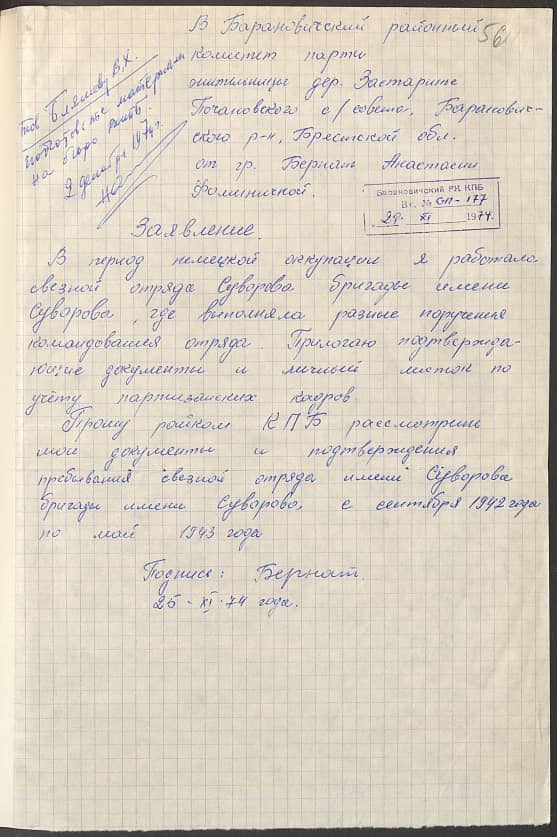 В Барановичский районный
56
комитет парти
жительницы дер. Застаринье
Почановского с/совета, Баранович-
ского р-н, Брестской обл.
от гр. Бернат Анастасии
Фоминичной.
тов Бляшеву В.Х.
подготовьте материалы
на бюро РК КПБ.
2 декабря 1974 г.
Барановичский РК КПБ
Вх. № СП-177
29. XI 1974.
Заявление.
В период немецкой оккупации я работала
связной отряда Суворова бригады имени
Суворова, где выполняла разные поручения
командования отряда. Прилогаю подтвержда-
ющие документы и личный листок по
учёту партизанских кадров.
Прошу райком КПБ рассмотрить
мои документы и подтверждения
пребывания связной отряда имени Суворова
бригады имени Суворова, с сентября 1942 года
по май 1943 года
Подпись: Бернат.
25 - XI - 74 года.